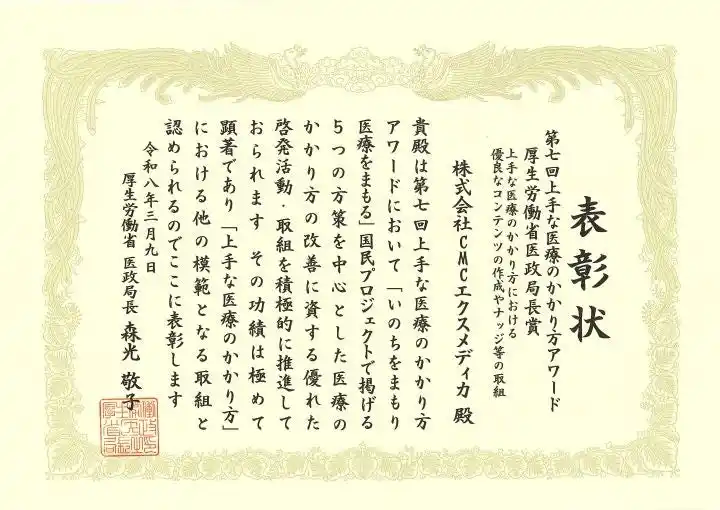 表彰状
第七回上手な医療のかかり方アワード
厚生労働省医政局長賞
上手な医療のかかり方における
優良なコンテンツの作成やナッジ等の取組
株式会社CMCエクスメディカ 殿
貴殿は第七回上手な医療のかかり方
アワードにおいて「いのちをまもり
医療をまもる」国民プロジェクトで掲げる
5つの方策を中心とした医療の
かかり方の改善に資する優れた
啓発活動・取組を積極的に推進して
おられます その功績は極めて
顕著であり「上手な医療のかかり方」
における他の模範となる取組と
認められるのでここに表彰します
令和八年三月九日
厚生労働省 医政局長 森光 敬子